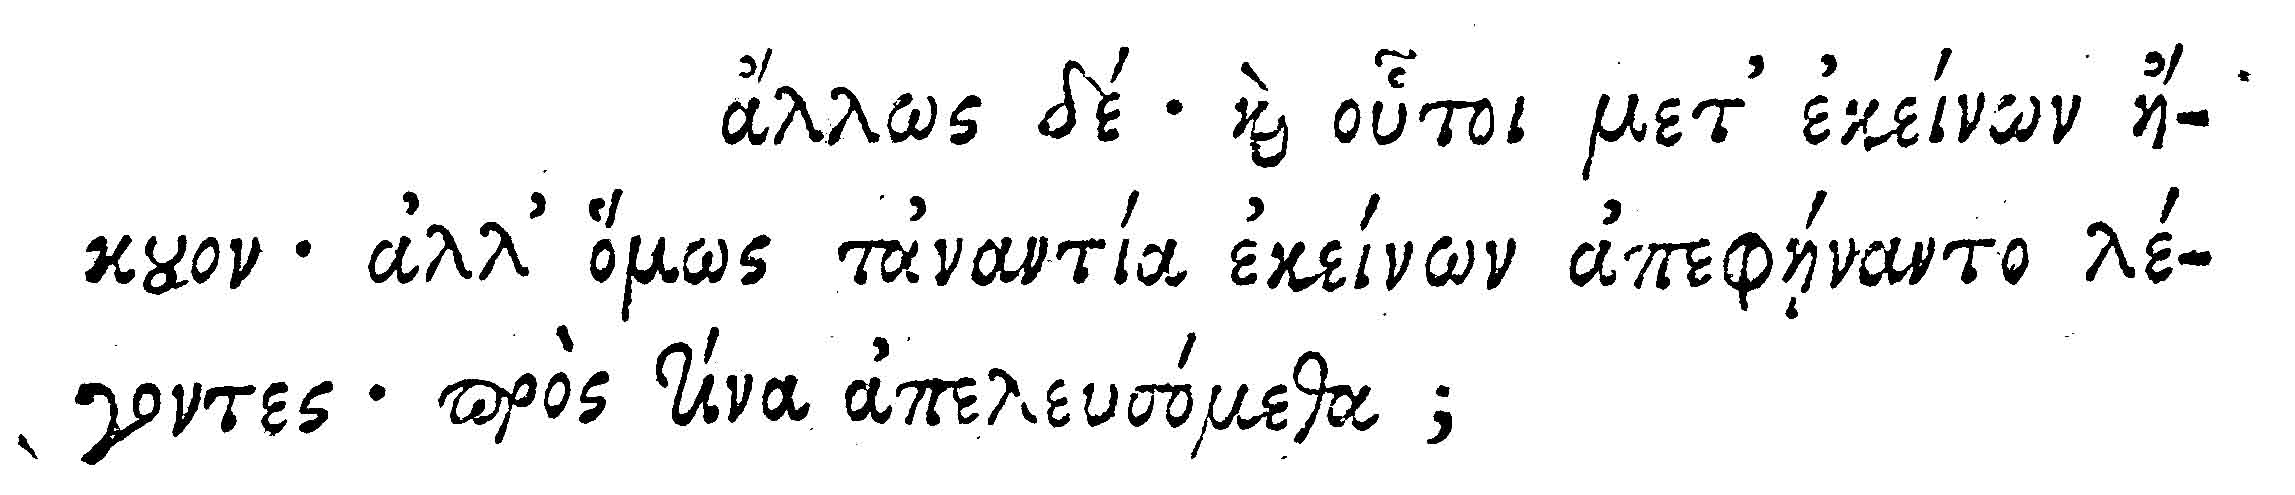 ἄλλως δέ · ϗ̀ οὗτοι μετ᾽ ἐκείνων ἤ-
κȣον · ἀλλ᾽ ὅμως τἀναντία ἐκείνων ἀπεφήναντο λέ-
γοντες · ϖρὸς τίνα ἀπελευσόμεθα ;